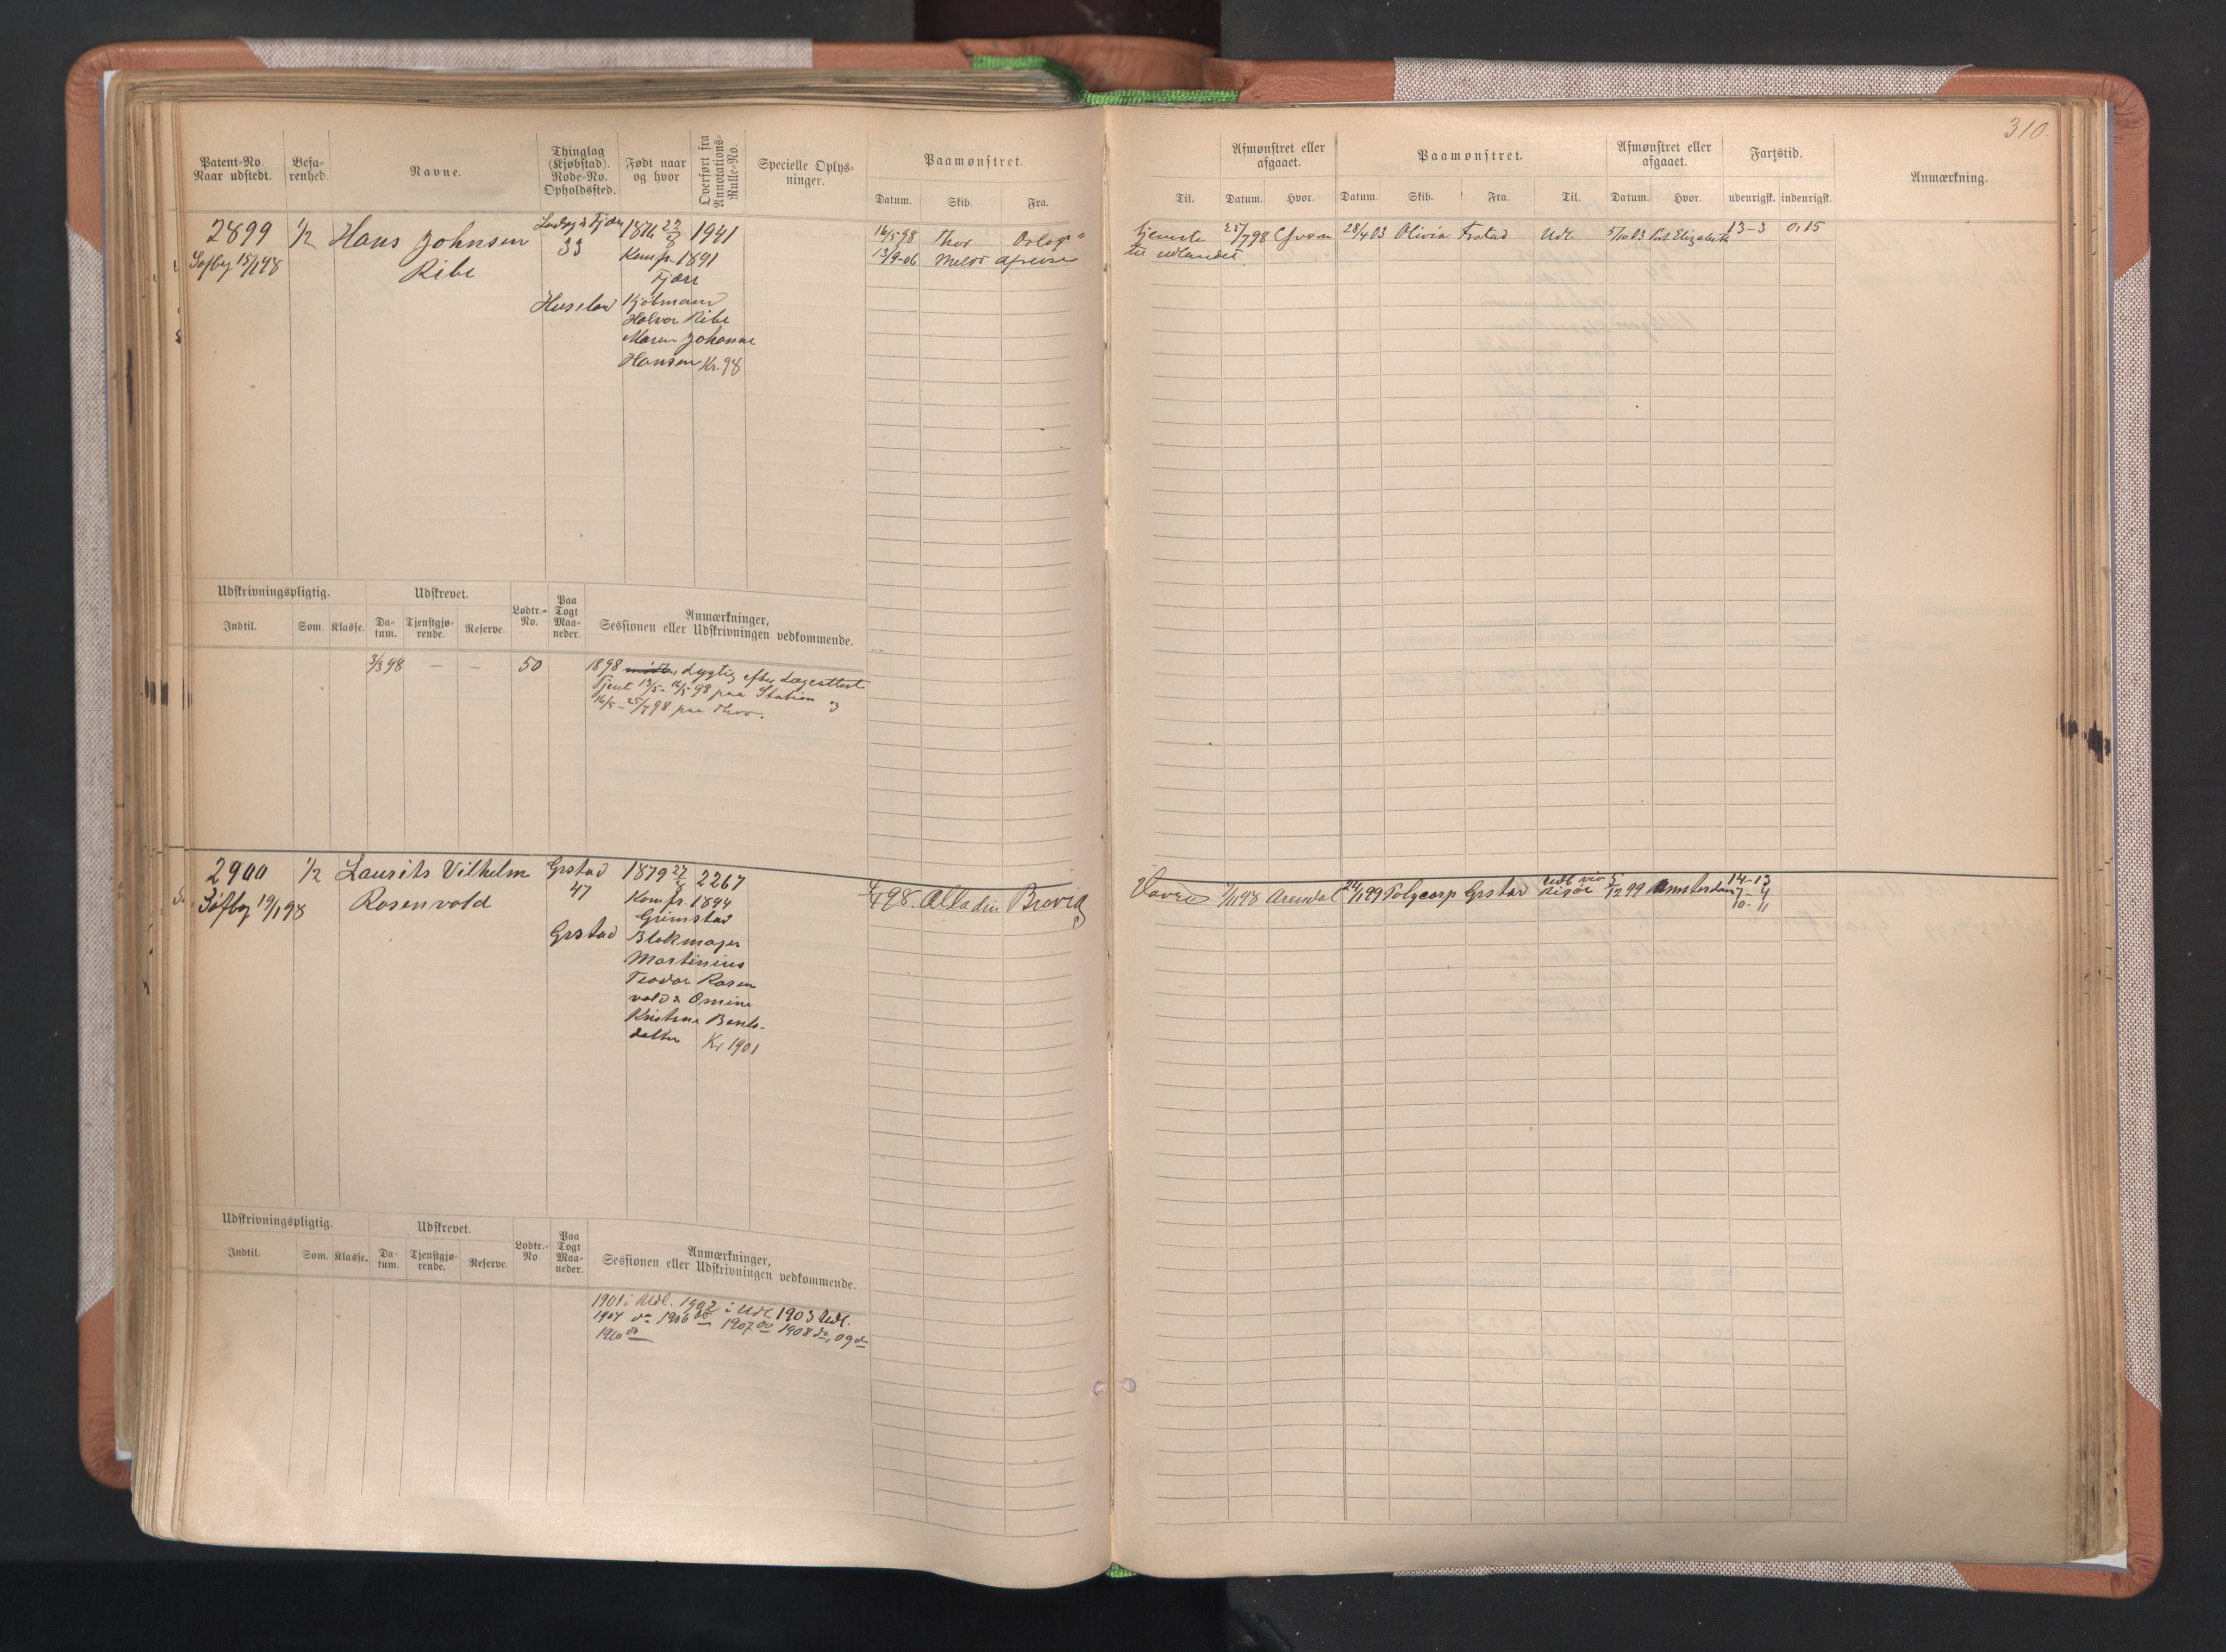 310.
Patent-No. Naar udstedt.
Befa-renhed.
Navne.
Thinglag (Kjøbstad). Rode-No. Opholdssted.
Født naar og hvor
Overført fra Annotations-Rulle-No.
Specielle Oplys-ninger.
Paamønstret.
Datum. Skib. Fra.
Til.
Afmønstret eller afgaaet.
Datum. Hvor.
Paamønstret.
Datum. Skib. Fra. Til.
Afmønstret eller afgaaet.
Datum. Hvor.
Fartstid.
udenrigsk. indenrigsk.
Anmærkning.
2899 1/2 Hans Johnsen 1876 22/8 1941
Ribe 33 Konfr. 1891
Fjære
Kjøbmand
Halvor Ribe
Maren Johanne
Hansen Kr. 98
16/5 98 Thor
13/9-06
Tjeneste 25/7 98
til udlandet.
28/4 03 Olivia Udl 5/10 03 Port Elizabeth 13-3 0,15
Udskrivningspligtig.
Indtil. Som. Klasse.
Udskrevet.
Da-tum. Tjenstgjø-rende. Reserve.
Lodtr.-No.
Paa Togt Maa-neder.
Anmærkninger,
Sessionen eller Udskrivningen vedkommende.
3/3 98 – – 50
1898 dygtig efter Lægeattest
Tjent 13/5-16/5 98 paa Station og
16/5-25/7 98 paa Thor.
2900 1/2 Laurits Vilhelm Grstad 1879 27/8 2267
Søfbog 19/1 98 Rosenvold 47 Konfr. 1894
Grimstad
Grstad Blokmager
Martinius
Teodor Rosen
vold & Omine
Kristine Bents-
datter Kr 1901
Alladin Brevig
7/11 98 Arendal 24/1 99 Polycarp Grstad Udl via Risør 5/12 99 Amsterdam 14-13
7-4
10-11
Udskrivningspligtig.
Indtil. Som. Klasse.
Udskrevet.
Da-tum. Tjenstgjø-rende. Reserve.
Lodtr.-No.
Paa Togt Maa-neder.
Anmærkninger,
Sessionen eller Udskrivningen vedkommende.
1901 i Udl. 1902 i Udl 1903 Udl.
1904 do 1906 do 1907 do 1908 do, 09 do
1910 do